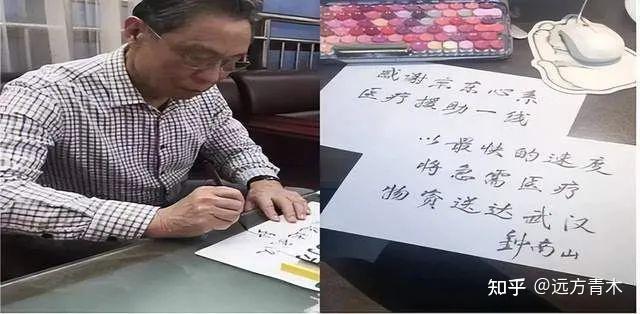 感谢京东心系
医疗援助一线
以最快的速度
将急需医疗
物资送达武汉
钟南山
知乎 @远方青木